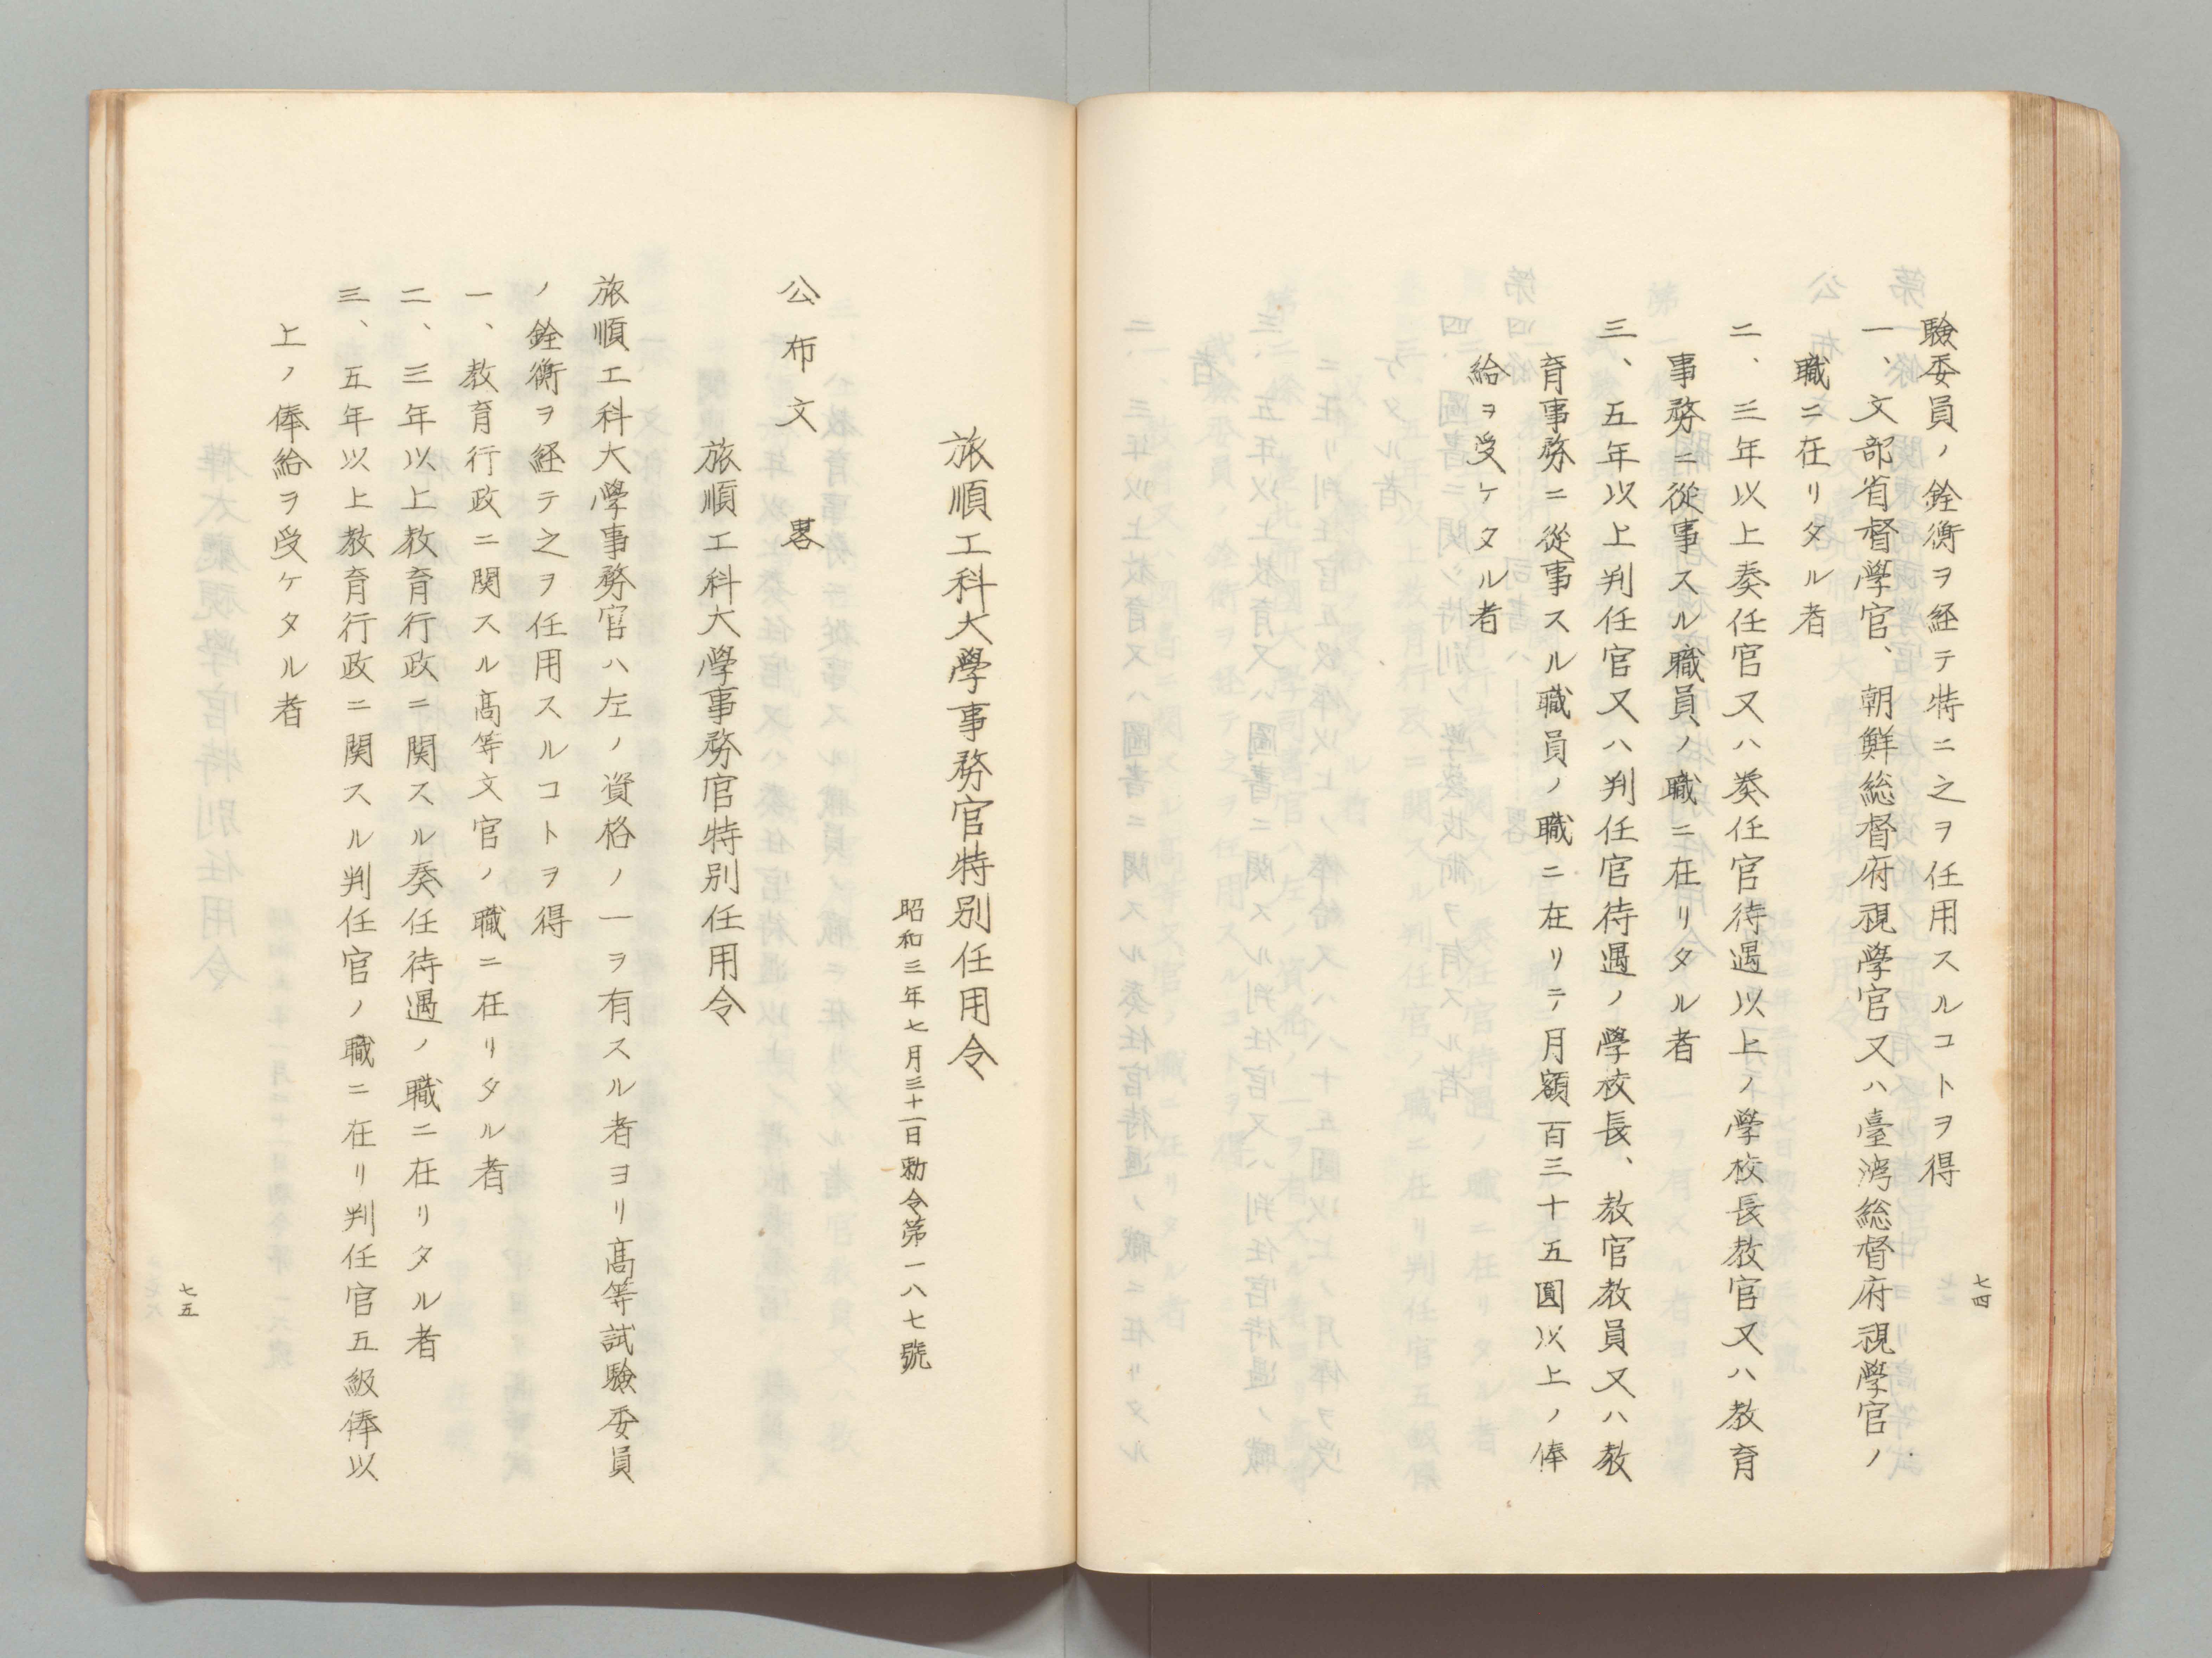 驗委員ノ銓衡ヲ経テ特ニ之ヲ任用スルコトヲ得
一、文部省督學官、朝鮮総督府視學官又ハ臺湾総督府視學官ノ
職ニ在リタル者
二、三年以上奏任官又ハ奏任官待遇以上ノ學校長教官又ハ教育
事務ニ從事スル職員ノ職ニ在リタル者
三、五年以上判任官又ハ判任官待遇ノ學校長、教官教員又ハ教
育事務ニ從事スル職員ノ職ニ在リテ月額百三十五圓以上ノ俸
給ヲ受ケタル者
七四
旅順工科大學事務官特別任用令
昭和三年七月三十一日勅令第一八七號
公布文 畧
旅順工科大學事務官特別任用令
旅順工科大學事務官ハ左ノ資格ノ一ヲ有スル者ヨリ高等試驗委員
ノ銓衡ヲ経テ之ヲ任用スルコトヲ得
一、教育行政ニ関スル高等文官ノ職ニ在リタル者
二、三年以上教育行政ニ関スル奏任待遇ノ職ニ在リタル者
三、五年以上教育行政ニ関スル判任官ノ職ニ在リ判任官五級俸以
上ノ俸給ヲ受ケタル者
七五